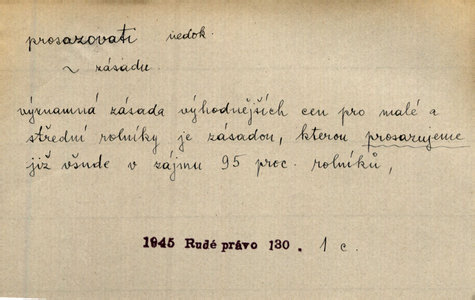 prosazovati nedok.
~ zásadu
významná zásada výhodnějších cen pro malé a
střední rolníky je zásadou, kterou prosazujeme
již všude v zájmu 95 proc. rolníků,
1945 Rudé právo 130. 1 c.